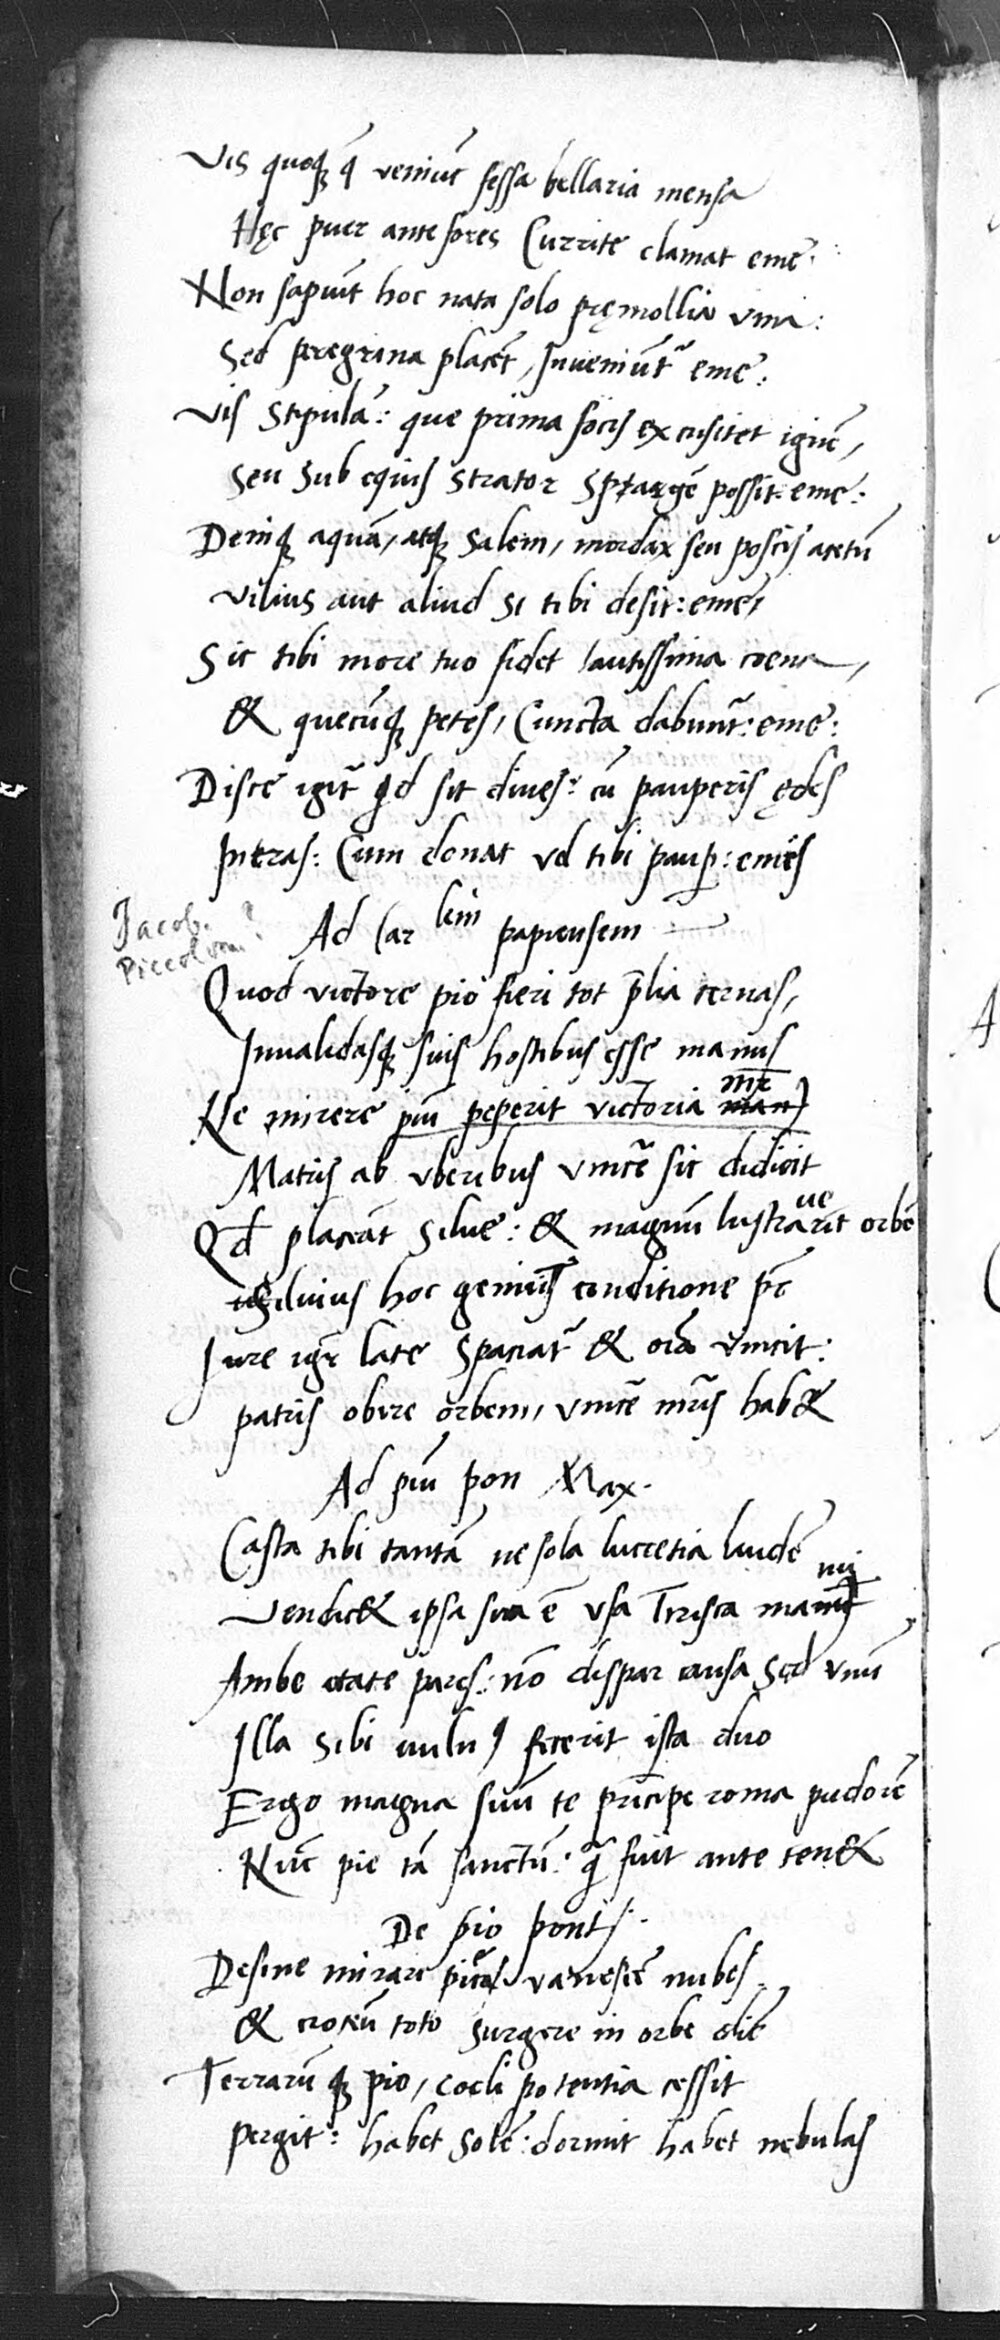 Vis quoq̨ q̄ veniūt fessa bellaria mensa
Hęc puer ante fores Currite clamat eme.
Non sapiūt hoc nata solo pręmollia vina:
Sed peregrina placēt, Inveniūt᷑ eme:
Vis Stipulā: que prima focis excusitet igiē,
Seu Sub equis Strator Spargē possit: eme:
Deniq̨ aquā, atq̨ Salem, mordax seu poscis acetū
Vilius aut aliud Si tibi desit: eme,
Sic tibi more tuo fidet lautissima coena,
& quecūq̨ petes, Cuncta dabūnt᷑: eme:
Disce igit᷑ qd sit dives: cū pauperis ędes
Intras: Cum donat vd tibi paup: emis
Ad Carlem papiensem
Jacob. ?
Piccolom.
Quod victore pio fieri tot p̄lia cernas,
Invalidasq̨ suis hostibus esse manus
Ne mirere piū peperit victoria mr̄
Matris ab vberibus vincē sic didicit
Qd placeāt Silve: & magnū lustraverīt orbē
Silvius hoc genius conditione p̄c
Jure igr̄ late Spaciat᷑ & oīa vincit:
patris obire orbem, vincē mr̄is hab&
Ad piū pon Max.
Casta tibi tantā ne sola lucretia laudē
Vendic& ipsa sua ē vsa Trisca manu
Ambe etate pares: nō dispar causa Sed vnū
Illa Sibi vuln9 fecerit ista duo
Ergo magna suū te prīcipe roma pudorē
Nūc pie tā sanctū: q̄ fuit ante ten&
De pio pont.
Desine mirari pictas vanescē nubes
& croceū toto Surgere in orbe diē
Terrarūq̨ pio, coeli potentia cessit
pergit: habet Solē: dormit habet nebulas